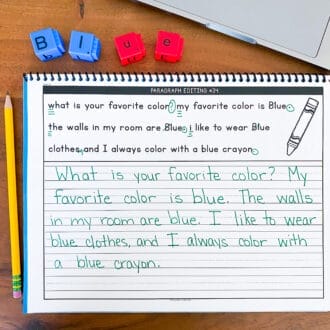 B l u e
PARAGRAPH EDITING #34
what is your favorite color? my favorite color is Blue.
the walls in my room are Blue. i like to wear Blue
clothes, and I always color with a blue crayon.
What is your favorite color? My
favorite color is blue. The walls
in my room are blue. I like to wear
blue clothes, and I always color with
a blue crayon.